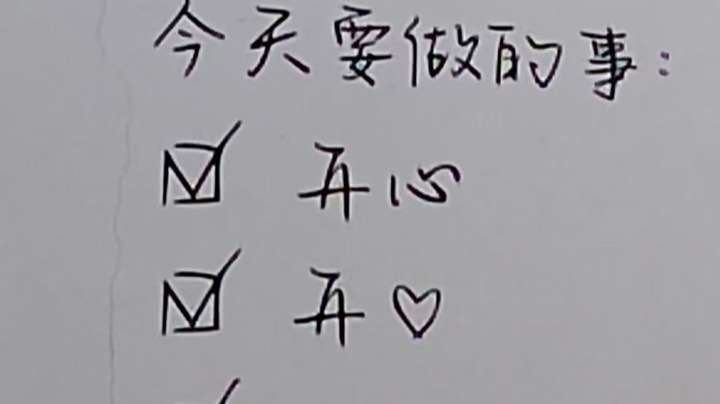 今天要做的事:
☑ 开心
☑ 开♡